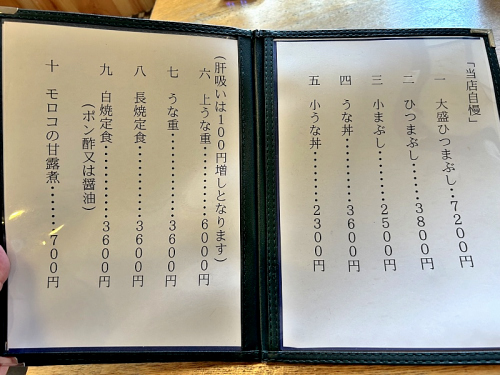 「当店自慢」
一 大盛ひつまぶし‥7200円
二 ひつまぶし‥‥‥3800円
三 小まぶし‥‥‥‥2500円
四 うな丼‥‥‥‥‥3600円
五 小うな丼‥‥‥‥2300円
(肝吸いは100円増しとなります)
六 上うな重‥‥‥‥6000円
七 うな重‥‥‥‥‥3600円
八 長焼定食‥‥‥‥3600円
九 白焼定食‥‥‥‥3600円
(ポン酢又は醤油)
十 モロコの甘露煮‥‥700円